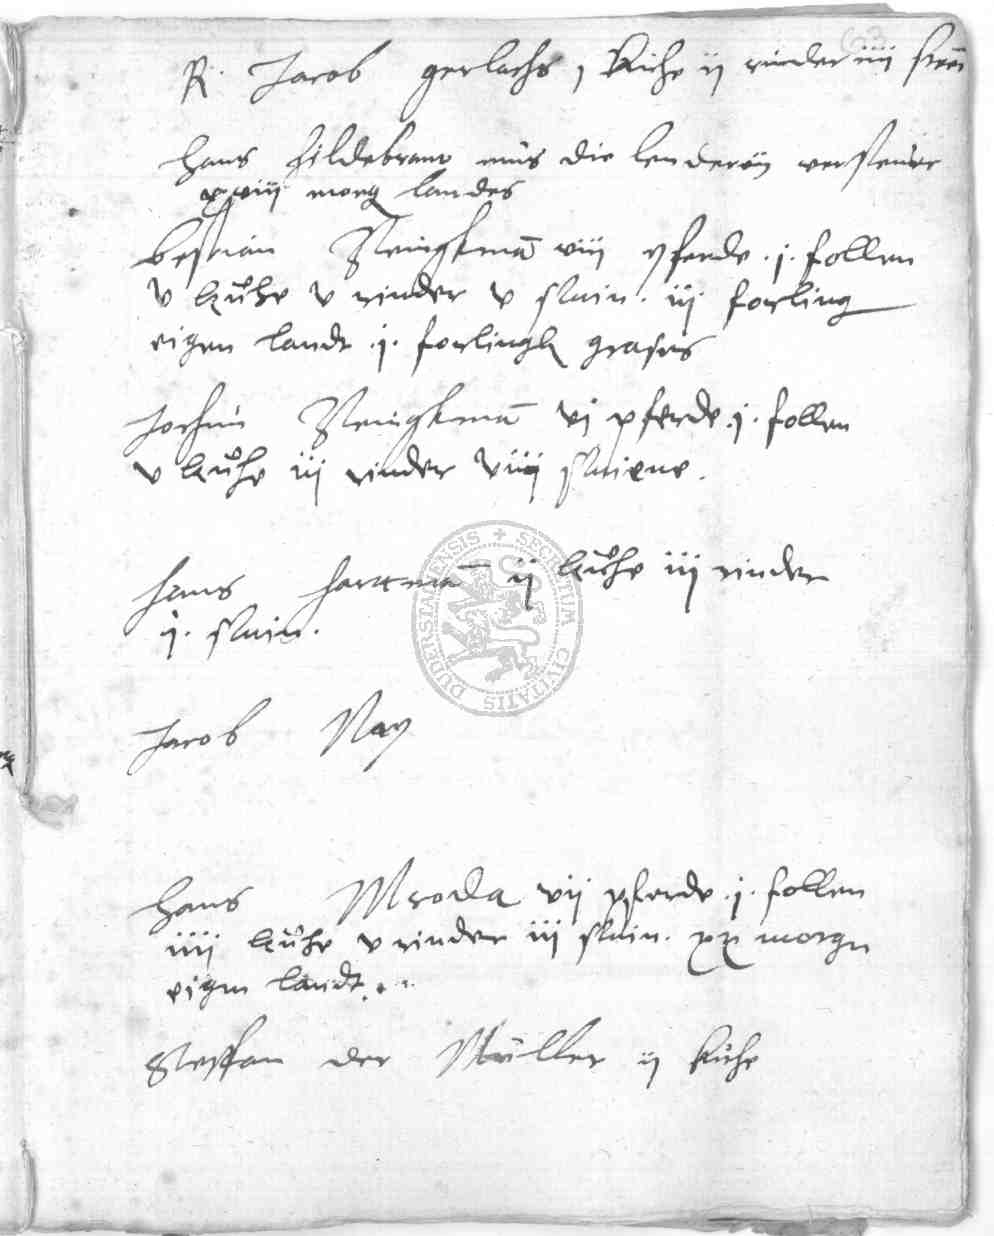 63
R Jacob gerlachs j Kuhe ij rinder iiij
hans hildebrant mus die lenderey versteur
xviij morg landes
bestian viij pferde .j. follen
v kuhe v rinder v swin. iij forling
eigen landt .j. forlingk grases
Jochim vj pferde .j. follen
v kuhe iij rinder viij swiene.
hans hartmā ij kuhe iij rinder
j. swin.
Jacob May
hans vij pferde .j. follen
iiij kuhe v rinder iij swin. xx morgn
eigen landt
Steffan der Müller ij Kuhe
SECRETUM CIVITATIS DUDERSTADENSIS